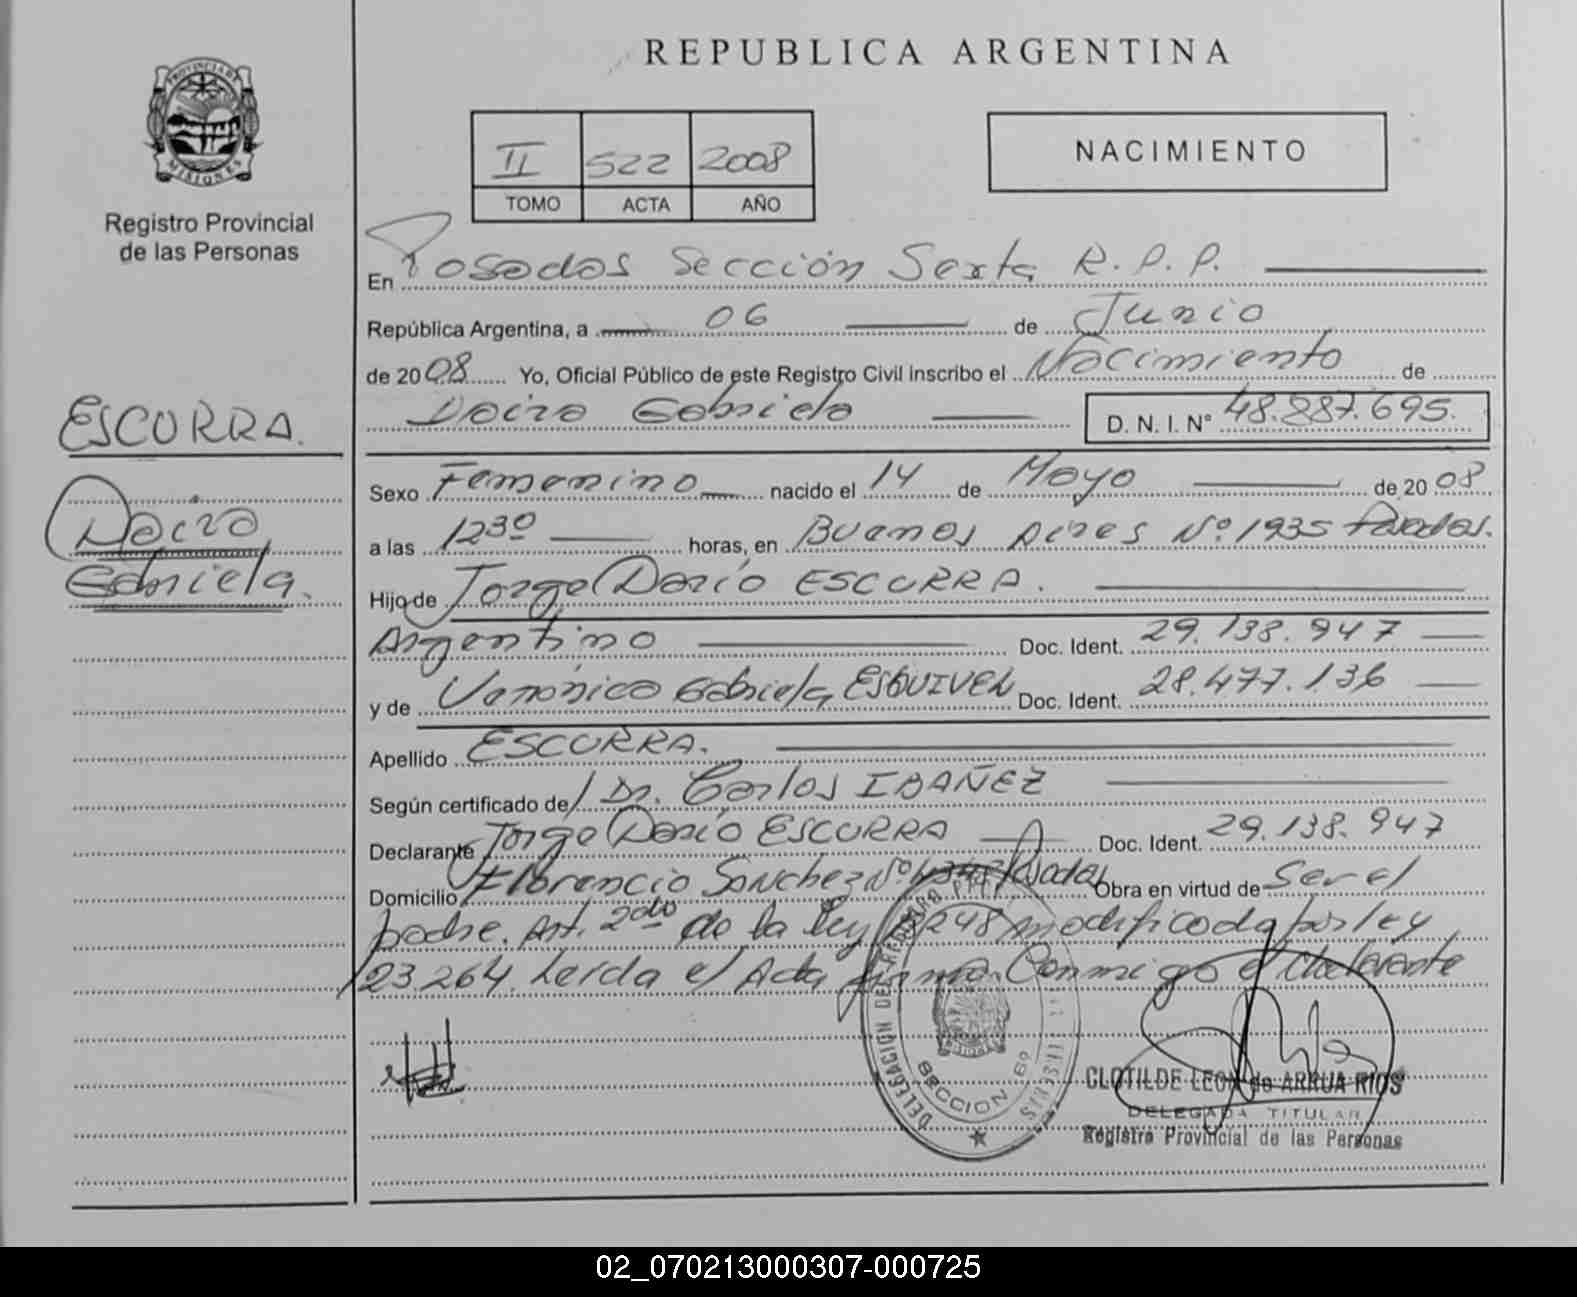 REPUBLICA ARGENTINA
PROVINCIA DE MISIONES
Registro Provincial
de las Personas
II 522 2008
TOMO ACTA AÑO
NACIMIENTO
En Posadas Sección Sexta R. P. P.
República Argentina, a 06 de Junio
de 2008 Yo, Oficial Público de este Registro Civil inscribo el Nacimiento de
Daira Gabriela D. N. I. N° 48.887.695.
ESCURRA.
Daira
Gabriela.
Sexo Femenino nacido el 14 de Mayo de 2008
a las 12³⁰ horas, en Buenos Aires Nº 1935 Posadas.
Hijo de Jorge Darío ESCURRA.
Argentino Doc. Ident. 29.138.947
y de Verónica Gabriela ESQUIVEL Doc. Ident. 28.477.136
Apellido ESCURRA.
Según certificado de Dr. Carlos IBAÑEZ
Declarante Jorge Darío ESCURRA Doc. Ident. 29.138.947
Domicilio Florencio Sanchez Nº Posadas Obra en virtud de Ser el
padre. Art. 2do de la ley 18248 modificada por ley
23.264. Leída el Acta firma Conmigo el declarante
DELEGACION DEL REGISTRO
SECCION 6º
MISIONES
CLOTILDE LEON de ARRUA RIOS
DELEGADA TITULAR
Registro Provincial de las Personas
02_070213000307-000725